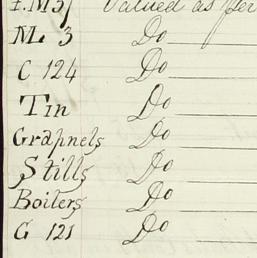 I.M 5/ Valued as per
M. 3 Do
C 124 Do
Tin Do
Grapnels Do
Stills Do
Boilers Do
G 121 Do